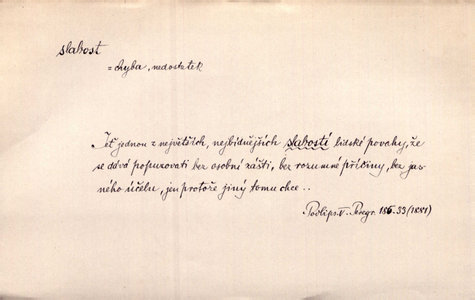 slabost
= chyba, nedostatek
Jeť jednou z největších, nejbídnějších slabostí lidské povahy, že
se dává popuzovati bez osobní zášti, bez rozumné příčiny, bez jas-
ného účelu, jen protože jiný tomu chce ..
Podlips. V. Peregr. 186.33 (1881)